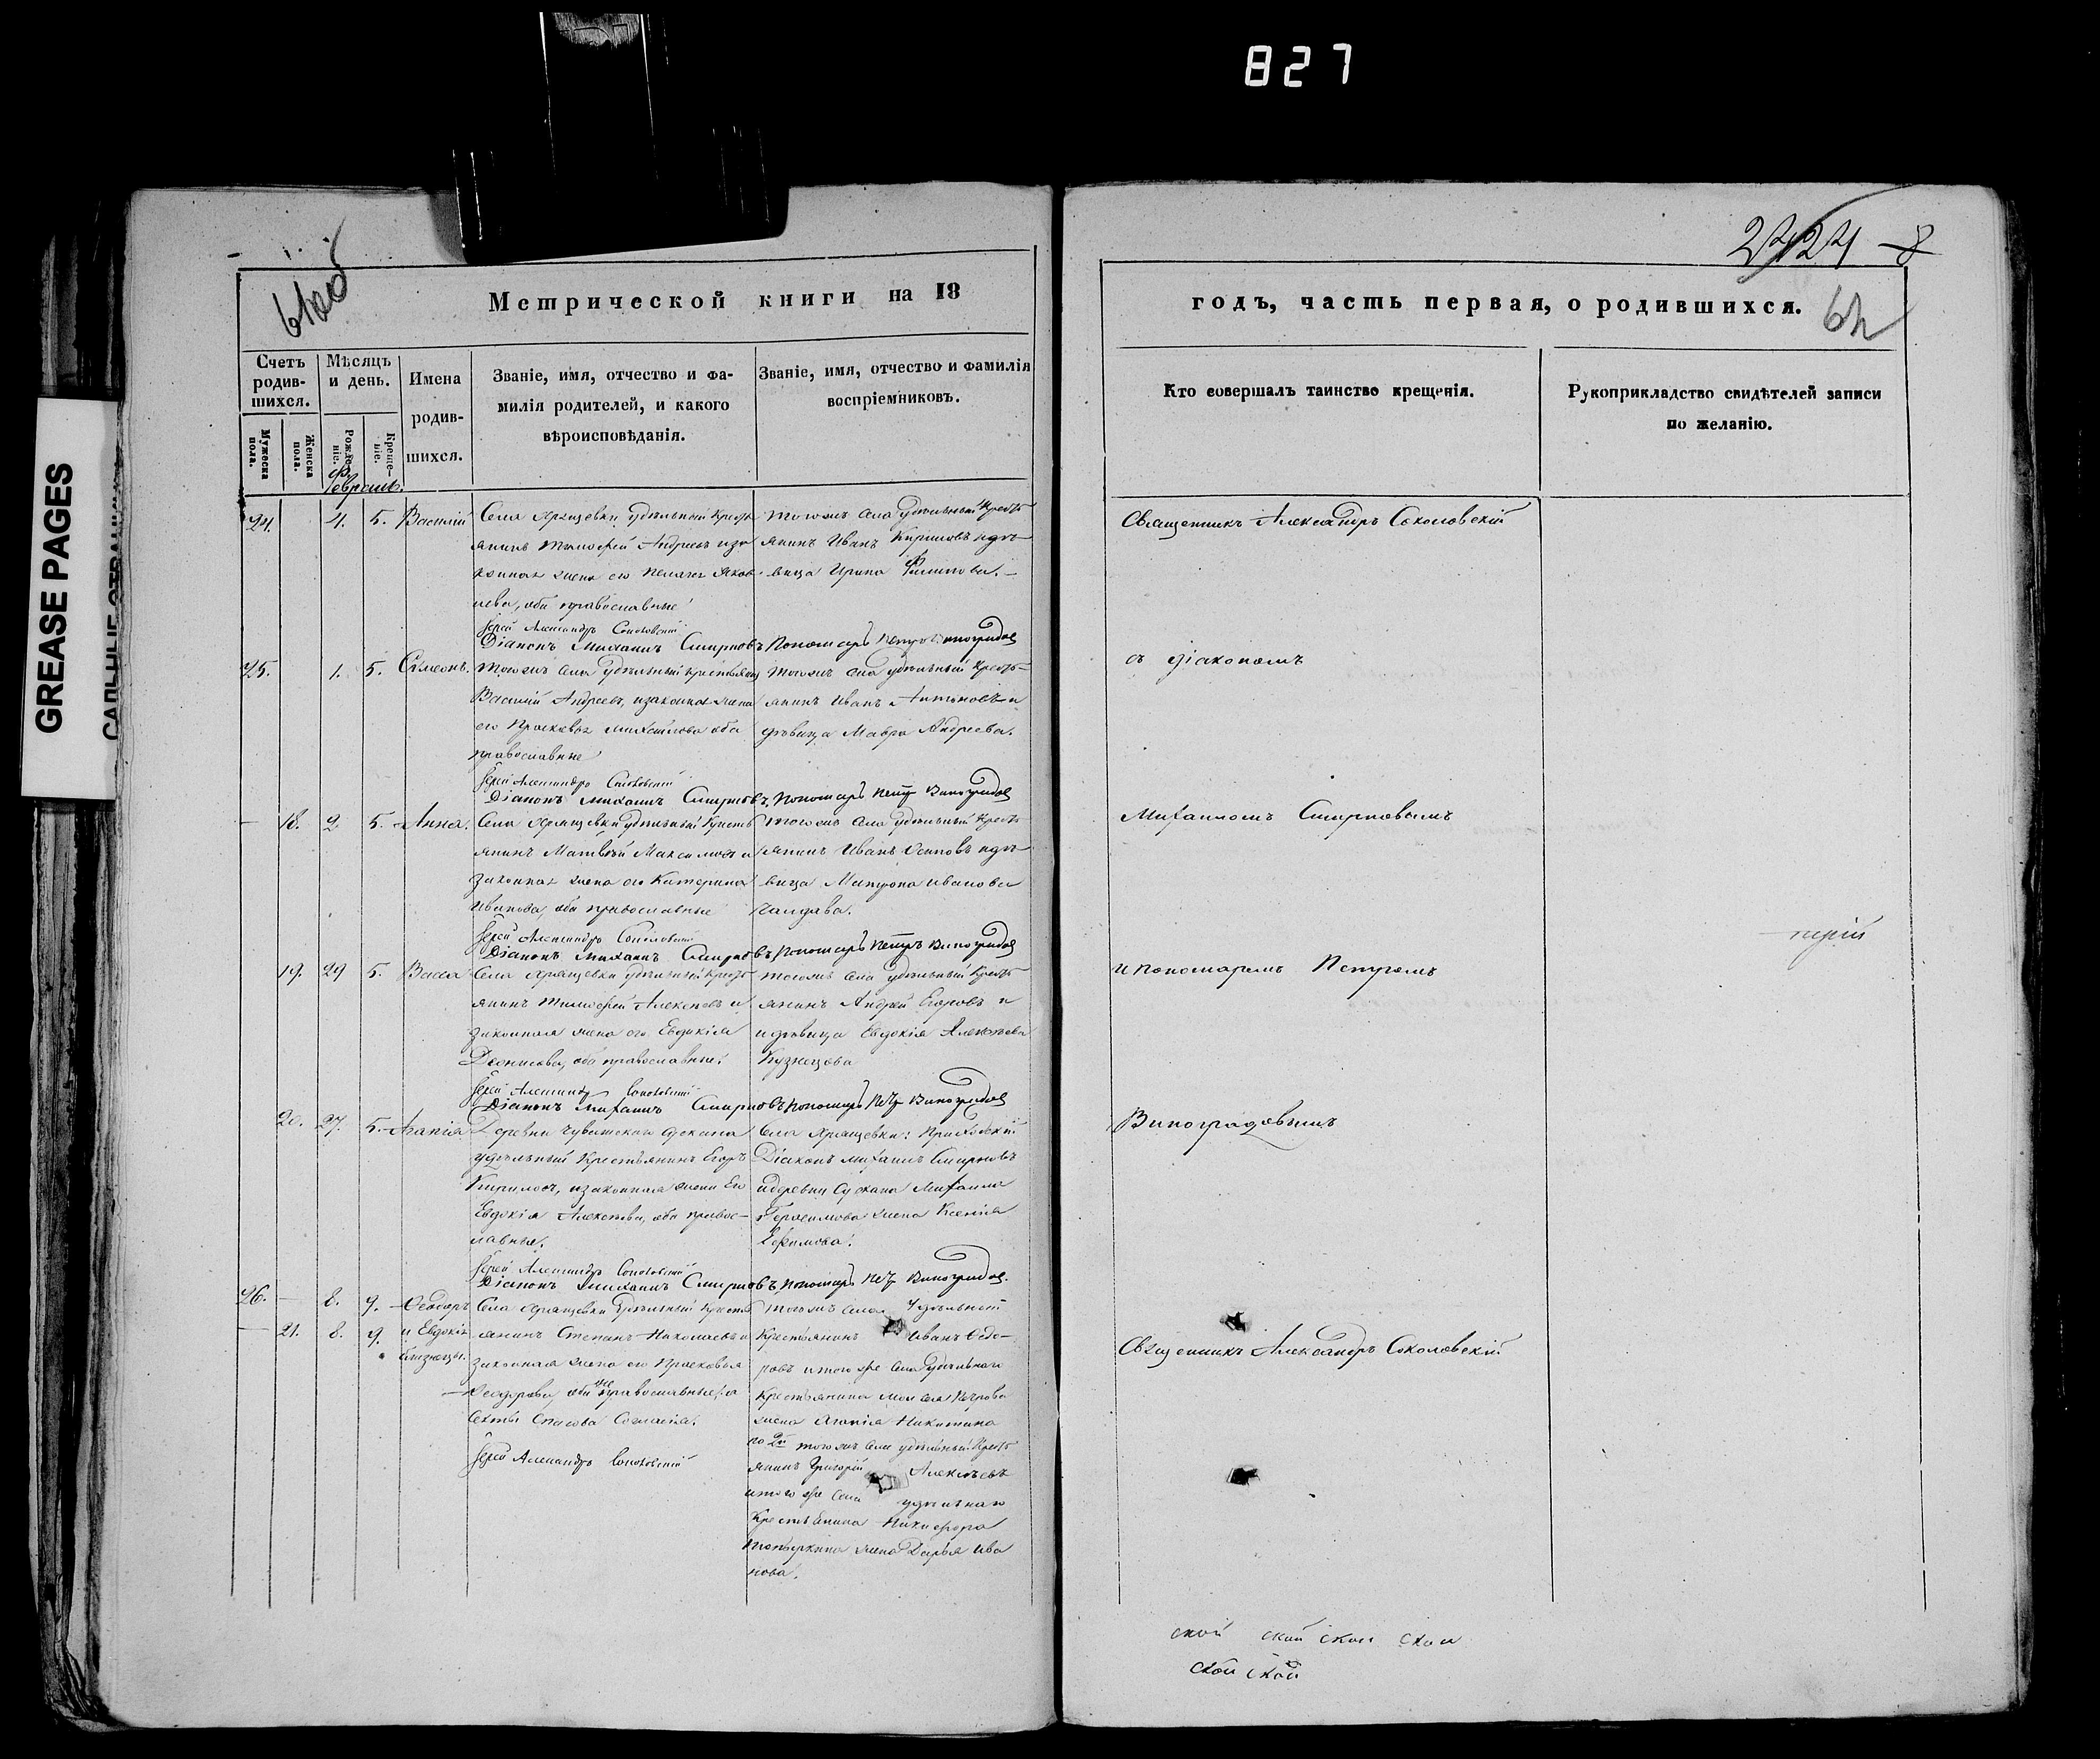 827
GREASE PAGES
61 об
2424 8
62
Метрической книги на 18
годъ, часть первая, о родившихся.
Счетъ родив-
шихся.
Мужеска пола.
Женска пола.
Мѣсяцъ и день.
Рожде-
ніе.
Креще-
ніе.
Имена родив-
шихся.
Званіе, имя, отчество и фа-
милія родителей, и какого
вѣроисповѣданія.
Званіе, имя, отчество и фамилія
воспріемниковъ.
Кто совершалъ таинство крещенія.
Рукоприкладство свидѣтелей записи
по желанію.
Февраль.
24. 4. 5. Василій
Села удѣльный Кресть
янинъ Тимофей Андреевъ и за
конная жена его Яков
лева, оба православные
Тогожъ села удѣльный Кресть
янинъ Иванъ Кириловъ и дѣ
вица Ирина Филипова.
Священникъ Александръ Соколовскій
Іерей Александръ Соколовскій
Діаконъ Михаилъ Смирновъ Пономарь Петръ Виноградов
25. 1. 5. Симеонъ.
Тогожъ села удѣльный крестьянин
Василій Андреевъ, и законная жена
его Михайлова оба
православные
Тогожъ села удѣльный Кресть
янинъ Иванъ Антоновъ и
дѣвица Мавра Андреева.
съ діакономъ
Іерей Александръ Соколовскій
Діаконъ Михаилъ Смирновъ, Пономарь Петр Виноградов
18. 2. 5. Анна.
Села удѣльный Кресть
янинъ Матвѣй Максимовъ и
законная жена его Катерина
Иванова, оба православные
Тогожъ села удѣльный Кресть
янинъ Иванъ Осиповъ и дѣ
вица Матрона Иванова
Михаиломъ Смирновымъ
Іерей Александръ Соколовскій
Діаконъ Михаилъ Смирновъ, Пономарь Петръ Виноградов
19. 29 5. Васса
Села удѣльный Кресть
янинъ Тимофей Алексѣевъ и
законная жена его Евдокія
Деонисова, оба православные.
Тогожъ села удѣльный Кресть
янинъ Андрей Егоровъ и
и дѣвица Евдокія Алексѣева
Кузнецова
и пономаремъ Петромъ
Іерей Александръ Соколовскій
Діаконъ Михаилъ Смирновъ Пономарь Петр Виноградов
20. 27. 5. Агапія
Деревни Чувашскаго Сускана
удѣльный Крестьянинъ Егоръ
Кириловъ, и законная жена Его
Евдокія Алексѣева, оба правос-
лавные.
Села Приходскій
Діаконъ Михаилъ Смирновъ
и деревни Сускана Михаила
Герасимова жена Ксенія
Ефимова.
Виноградовымъ
Іерей Александръ Соколовскій
Діаконъ Михаилъ Смирновъ, Пономарь Петр Виноградов.
26. — 8. 9. Ѳеодоръ
— 21. 8. 9. и Евдокія
близнецы.
Села удѣльный Кресть
янинъ Степанъ Николаевъ и
законная жена его Прасковья
Ѳеодорова, оба не православные, а
секты Спасова Согласія.
Іерей Александръ Соколовскій
Тогожъ села Удѣльной
Крестьянинъ Иванъ Ѳедо-
ровъ и того же села удѣльнаго
Крестьянина Петрова
жена Агапія Никитина
тогожъ села удѣльный Кресть
янинъ Григорій Алексѣевъ
и того же села удѣльнаго
Крестьянина Никифора
жена Дарья Ива
нова.
Священникъ Александръ Соколовскій
ской ской ской ской
ской ской